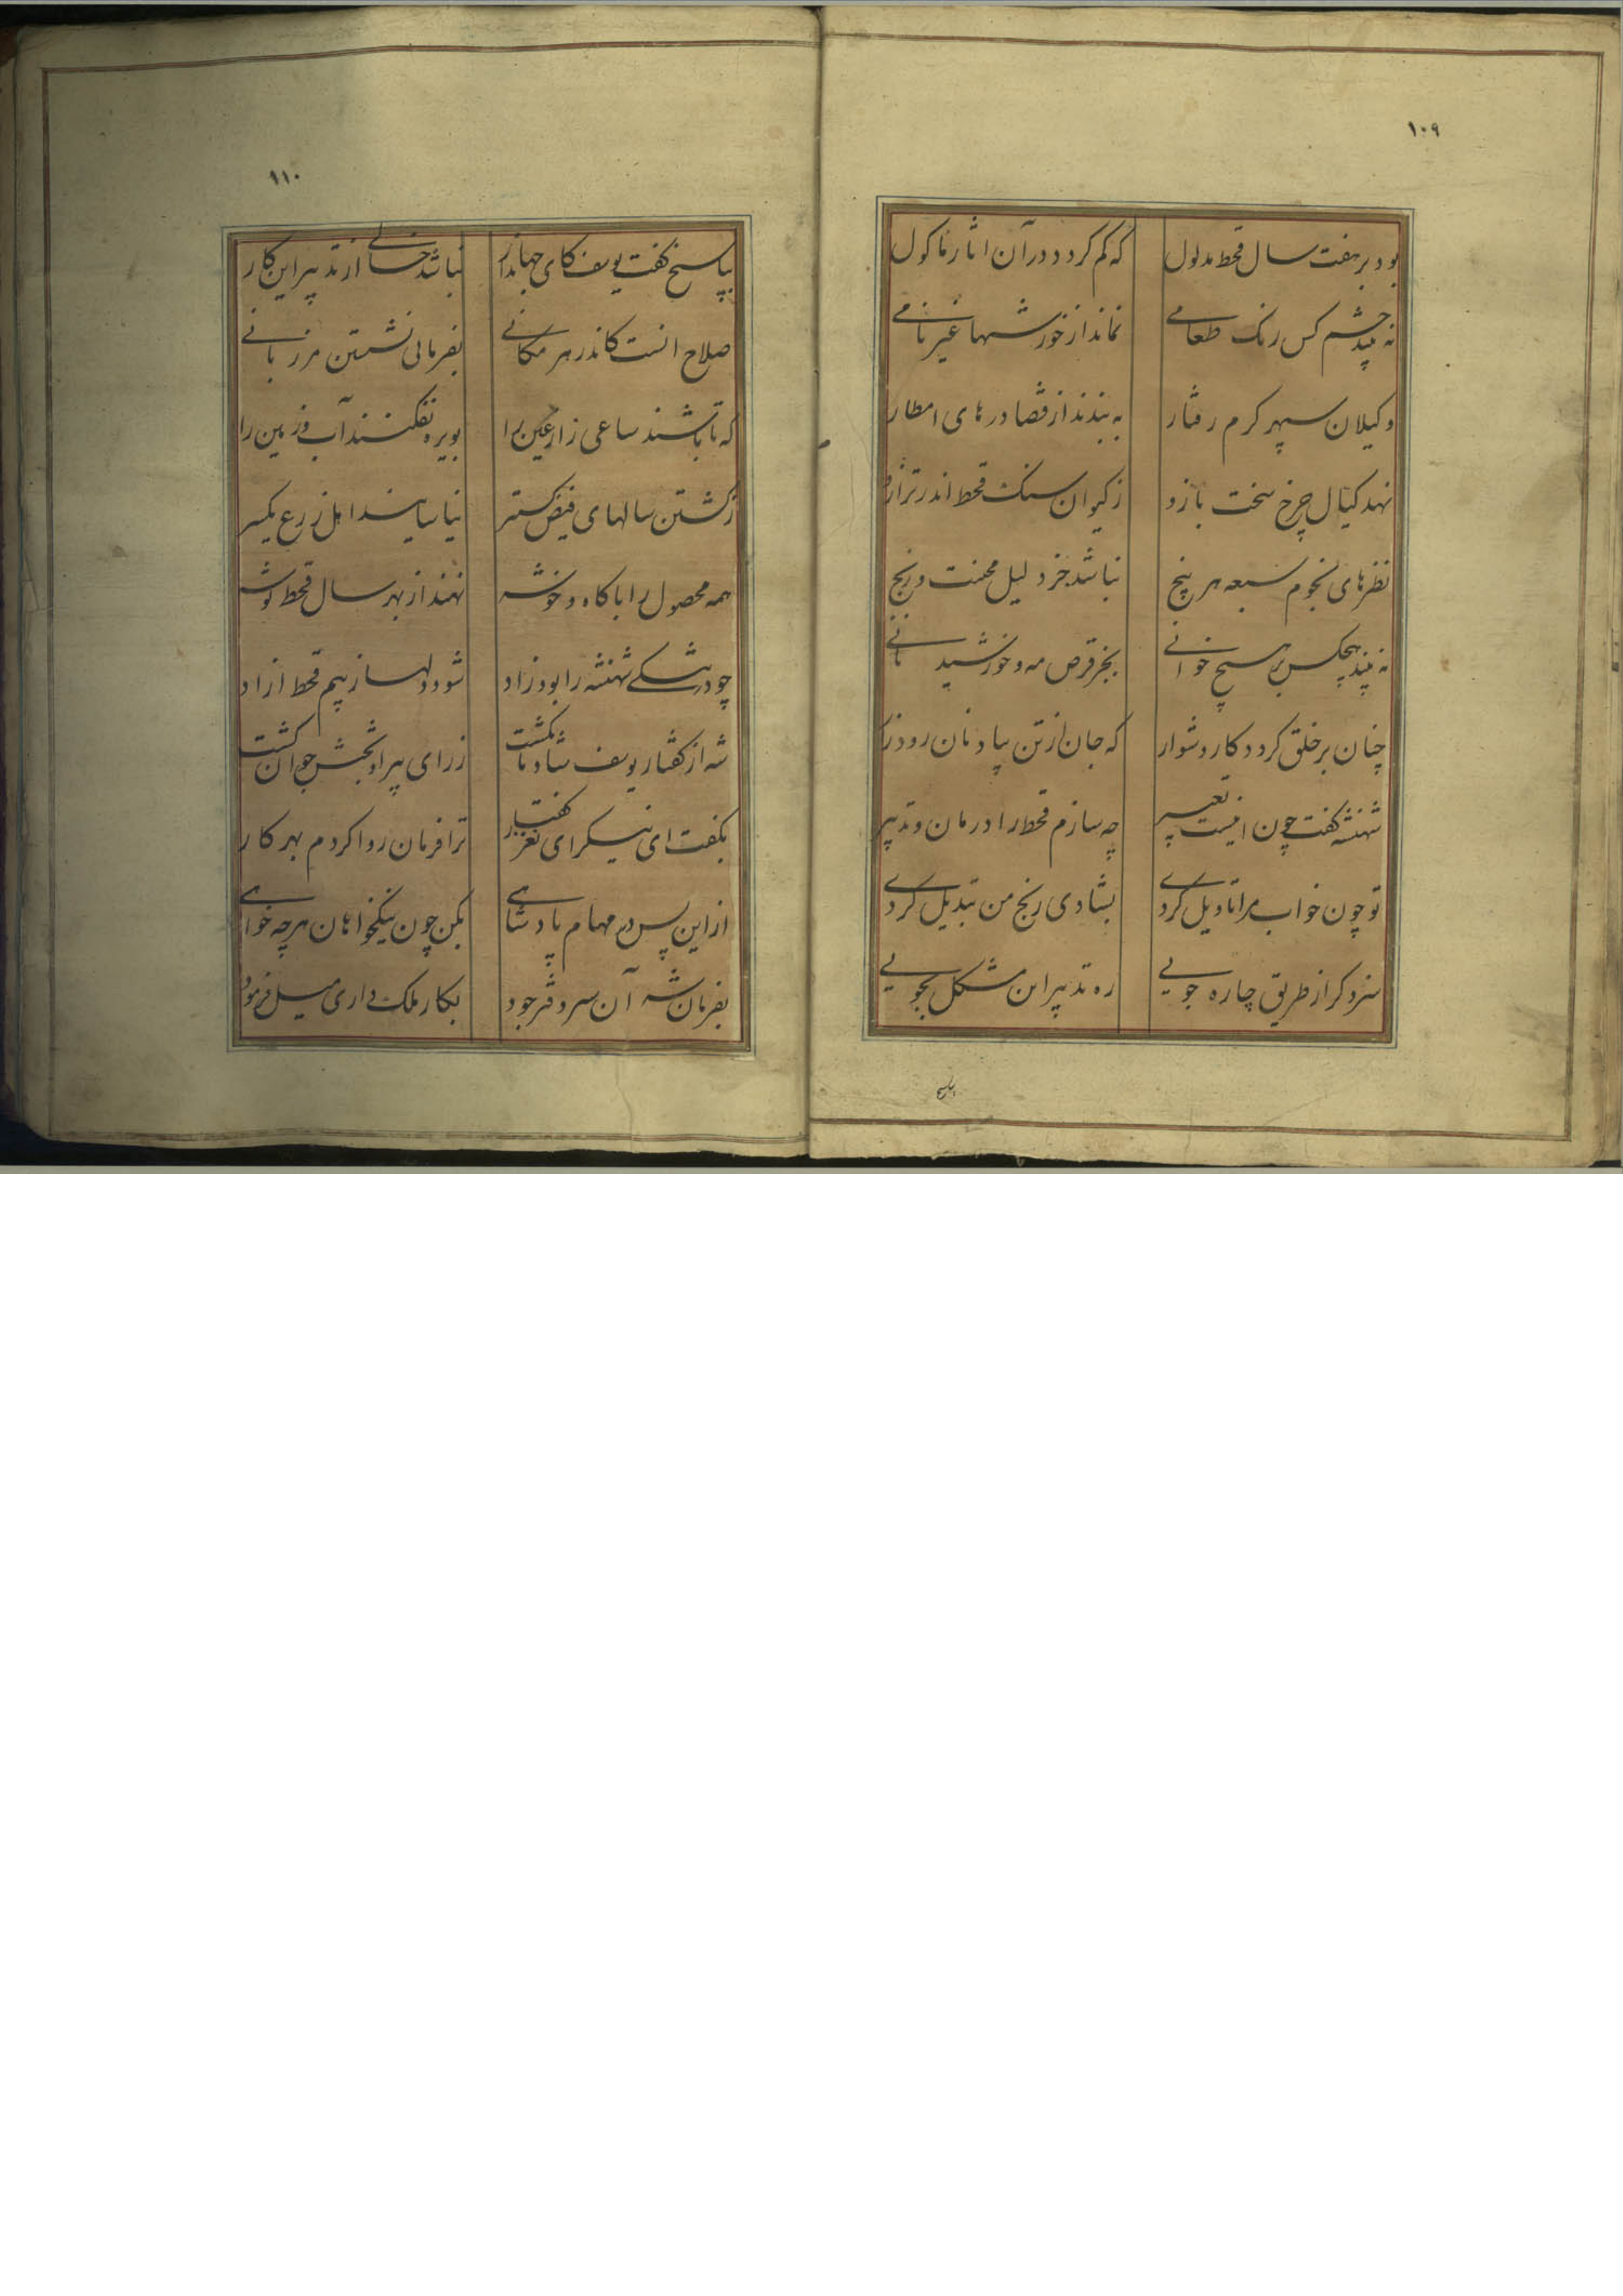 ۱۰۹
بود بر هفت سال قحط مدلول که کم کردد در آن اثار ماکول
نه بیند چشم کس رنک طعامی نماند از خورشها غیر نامی
وکیلان سپهر کرم رفتار به بندند از قضا درهای امطار
نهد کیال چرخ سخت بازو ز کیوان سنک قحط اندر ترازو
نظرهای نجوم سبعه هر پنج نباشد جز دلیل محنت و رنج
نه بیند هیچکس بر هیچ خوانی بجز قرص مه و خورشید نانی
چنان بر خلق کردد کار دشوار که جان از تن بیاد نان رود زار
شهنشه کفت چون اینست تعبیر چه سازم قحط را درمان و تدبیر
تو چون خواب مرا تاویل کردی بشادی رنج من تبدیل کردی
سزد کر از طریق چاره جویی ره تدبیر این مشکل بجویی
۱۱۰
بپاسخ کفت یوسف کای جهاندار نباشد خالی از تدبیر این کار
صلاح انست کاندر هر مکانی بفرمائی نشستن مرزبانی
که تا باشند ساعی زارعین را بویره نفکنند آب و زمین را
ز کشتن سالهای فیض کستر نیاسایند اهل زرع یکسر
همه محصول را با کاه و خوشه نهند از بهر سال قحط توشه
شود دلها ز بیم قحط ازاد
شه از کفتار یوسف شادمان کشت ز رای پیر او بختش جوان کشت
بکفت ای نیک رای نغز کفتار ترا فرمان روا کردم بهر کار
از این پس در مهام پادشاهی بکن چون نیکخواهان هر چه خواهی
بفرمان شه آن سر دفتر جود بکار ملک داری میل فرمود